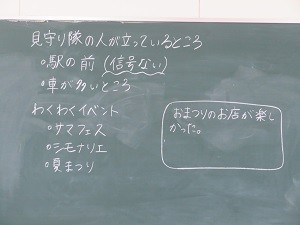 見守り隊の人が立っているところ
○駅の前(信号ない)
○車が多いところ
わくわくイベント
○サマフェス
○シモナリエ
○夏まつり
おまつりのお店が楽し
かった。